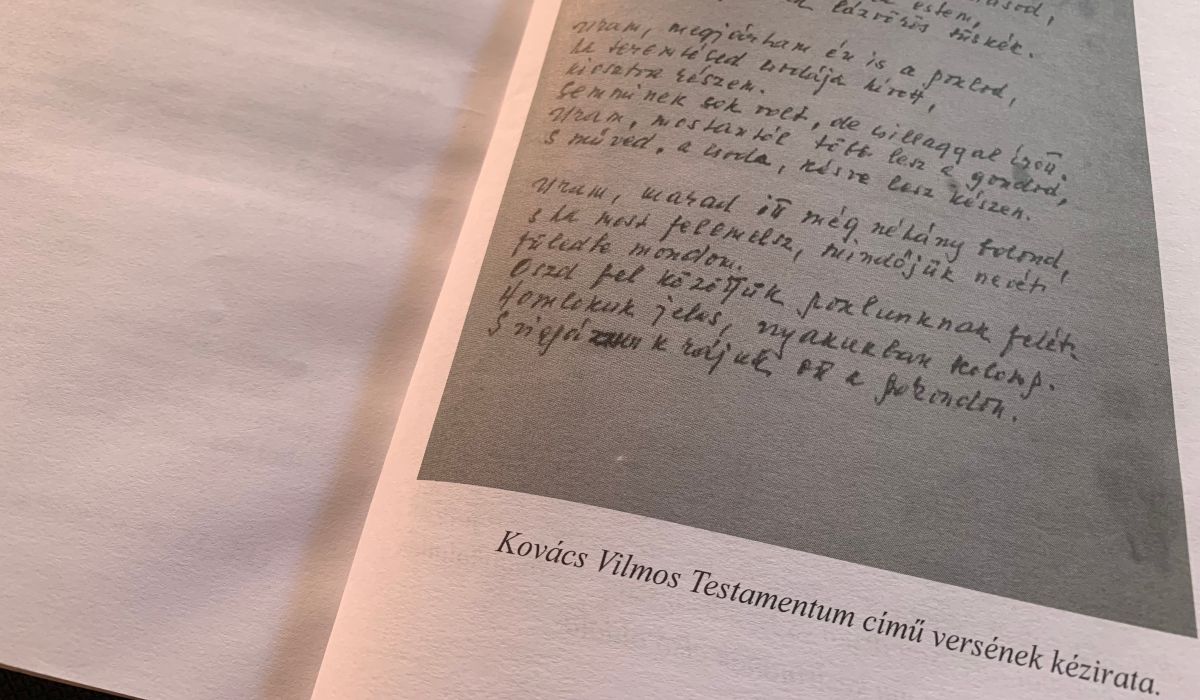 estem,
lázvörös tüskék.
Uram, megjártam én is a poklod,
kiosztva részem.
Semminek sok volt, de csillaggal érő.
Uram, mostantól több lesz a gondod,
S műved, a csoda, késve lesz készen.
Uram, marad itt még néhány bolond,
s ha most felemelsz, mindőjük nevét
füledbe mondom.
Oszd fel közöttük poklunknak felét.
Homlokuk jeles, nyakukban kolomp.
S vigyázunk rájuk ott a
Kovács Vilmos Testamentum című versének kézirata.